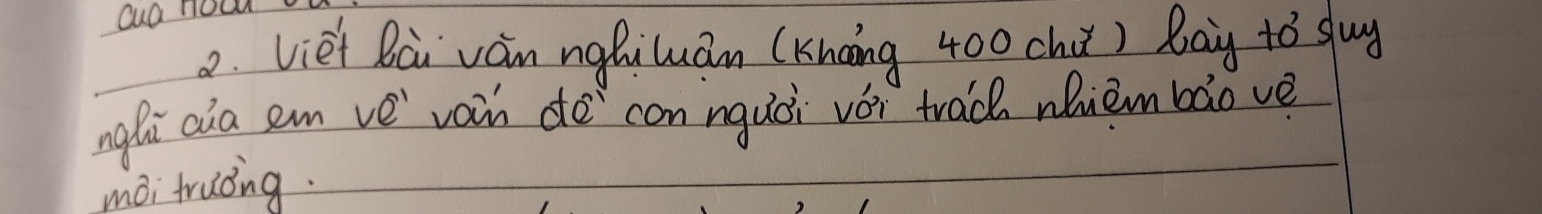 của
2. Viết bài văn nghị luận (Khoảng 400 chữ) bày tỏ suy
nghĩ của em về vấn đề con người với trách nhiệm bảo vệ
môi trường.